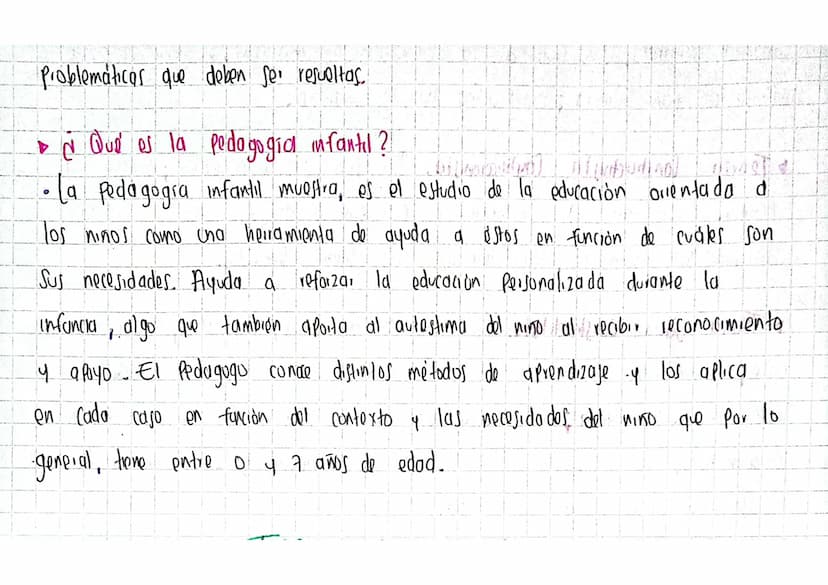 problemáticas que deben ser resueltas.
▸ ¿Qué es la pedagogía infantil?
• La pedagogía infantil muestra, es el estudio de la educación orientada a
los niños como una herramienta de ayuda a éstos en función de cuáles son
sus necesidades. Ayuda a reforzar la educación personalizada durante la
infancia, algo que también aporta al autoestima del niño al recibir reconocimiento
y apoyo. El Pedagogo conoce distintos métodos de aprendizaje y los aplica
en cada caso en función del contexto y las necesidades del niño que por lo
general, tiene entre 0 y 7 años de edad.